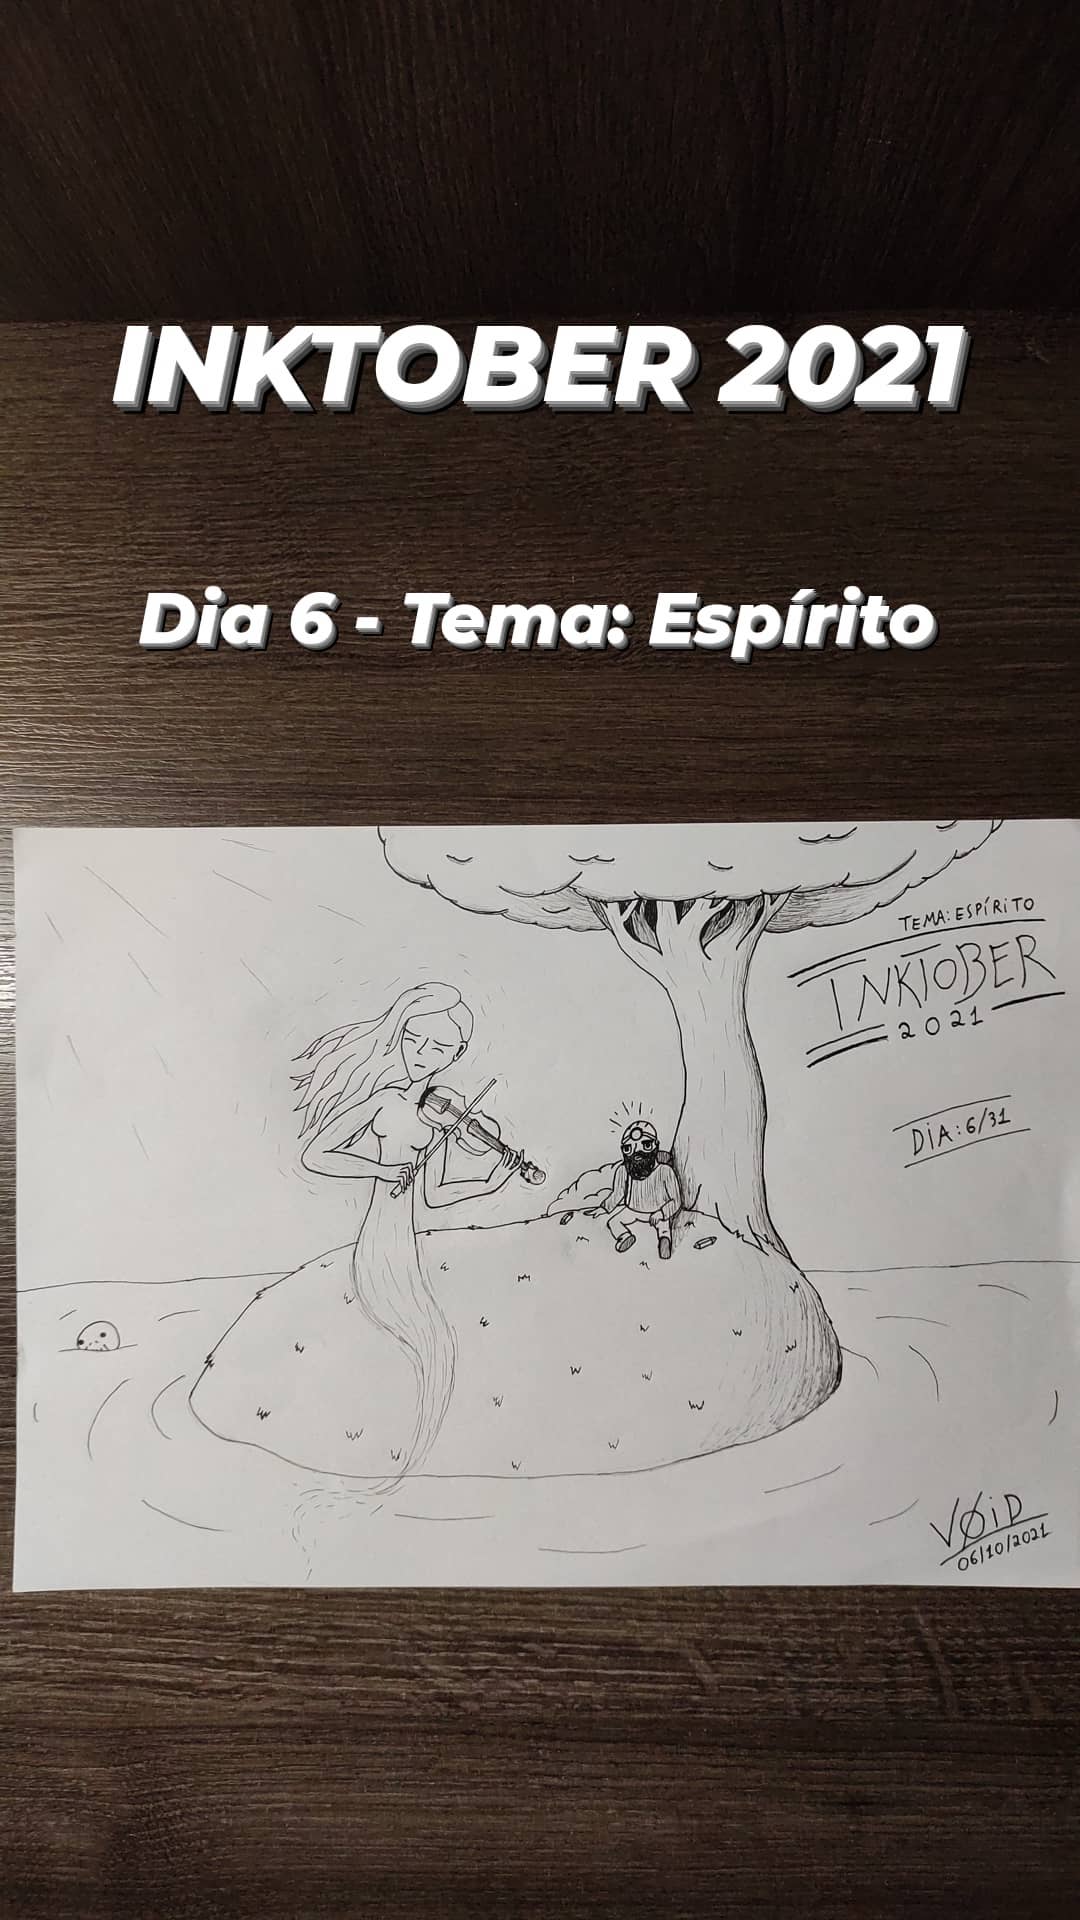 INKTOBER 2021
Dia 6 - Tema: Espírito
TEMA: ESPÍRITO
INKTOBER
2021
DIA: 6/31
VØID
06/10/2021